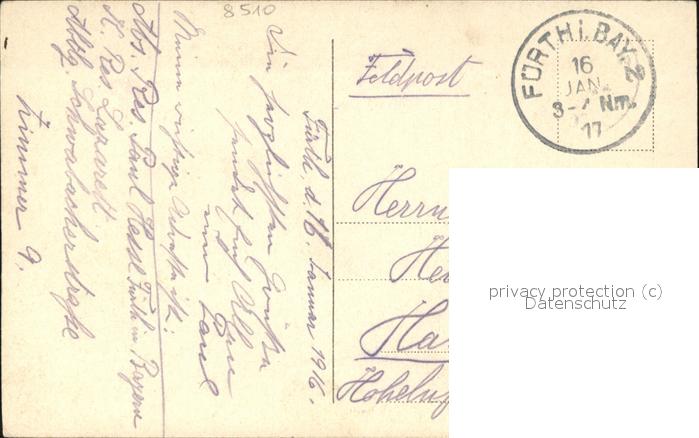 8510
Fürth, d. 16. Januar 1916.
Die herzlichsten Grüße
sendet Euch Allen
Paul
Meine richtige Adresse ist:
Abs. Res. Paul Fürth in Bayern
K. Res. Lazarett
Abtlg. Schwabacherstraße
Zimmer 9.
Feldpost
FÜRTH i. BAY. 2
16
JAN.
3-4 Nm.
17
Herrn
privacy protection (c)
Datenschutz